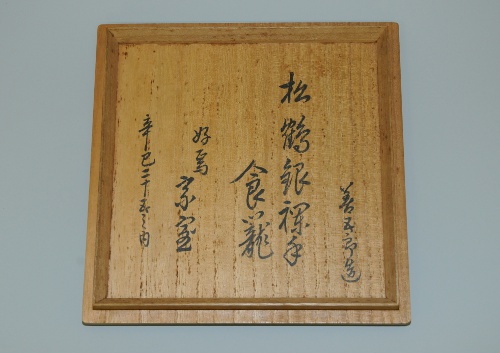 善五郎造
松鶴銀襴手
食籠
好焉
宗室
辛巳二十五之内